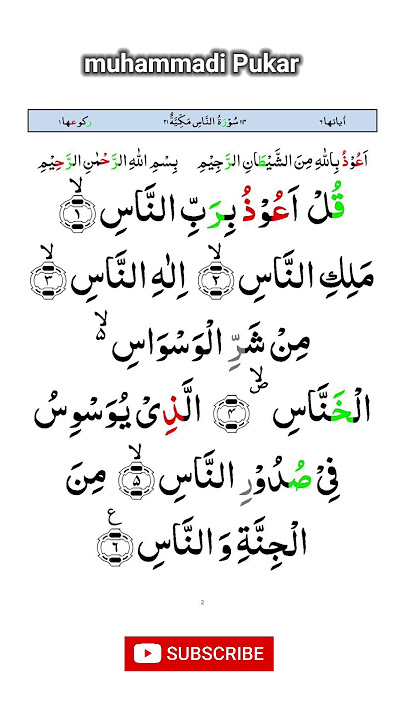 muhammadi Pukar
اٰیاتہا ۶ ۱۳ سُوْرَۃُ النَّاسِ مَکِّیَّۃٌ ۲۱ رکوعہا ۱
اَعُوْذُ بِاللهِ مِنَ الشَّیْطَانِ الرَّجِیْمِ بِسْمِ اللهِ الرَّحْمٰنِ الرَّحِیْمِ
قُلْ اَعُوْذُ بِرَبِّ النَّاسِ ۙ﴿۱﴾
مَلِكِ النَّاسِ ۙ﴿۲﴾ اِلٰهِ النَّاسِ ۙ﴿۳﴾
مِنْ شَرِّ الْوَسْوَاسِ ۙ۵
الْخَنَّاسِ ۪ۙ﴿۴﴾ الَّذِیْ یُوَسْوِسُ
فِیْ صُدُوْرِ النَّاسِ ۙ﴿۵﴾ مِنَ
الْجِنَّةِ وَ النَّاسِ ﴿۶﴾ ع
2
SUBSCRIBE